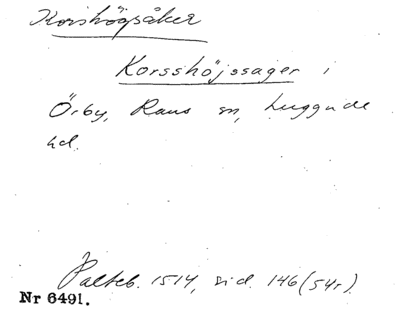 Korshögsåker
Korsshöjssager i
Örby, Raus sn, Luggude
hd.
Palteb. 1514, sid. 146 (54r)
Nr 6491.